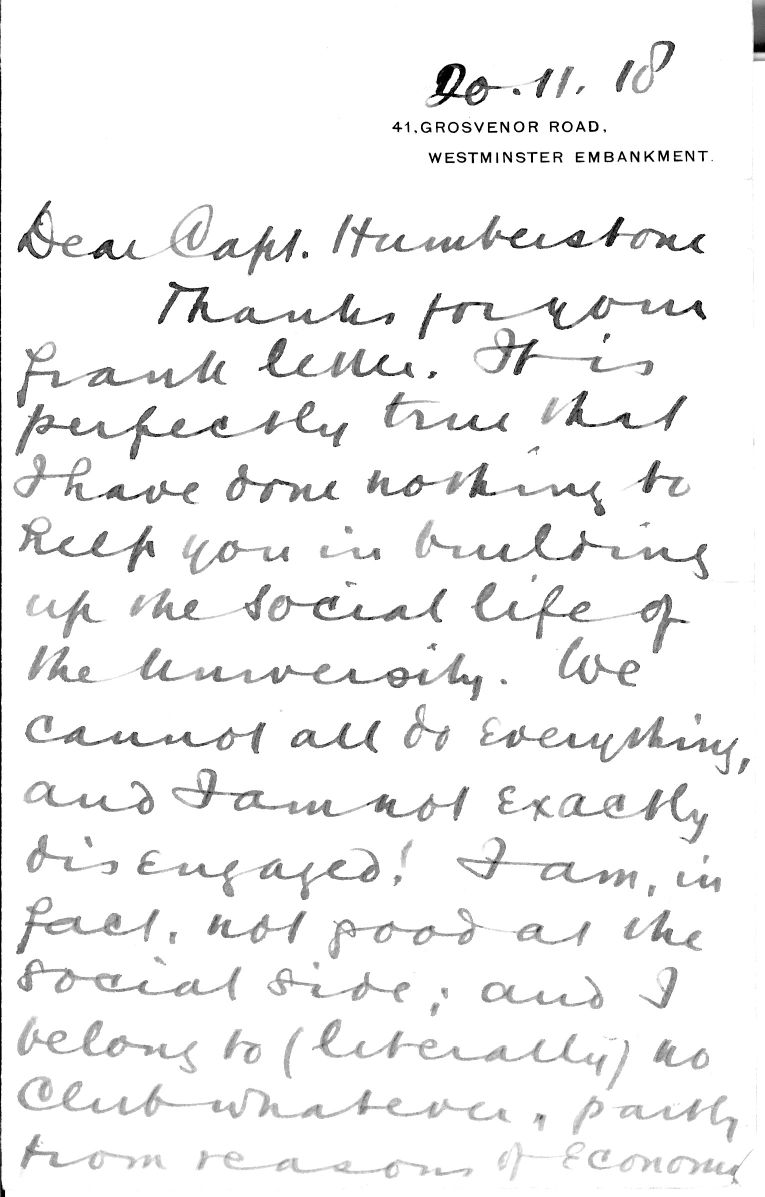 20.11.18
41, GROSVENOR ROAD,
WESTMINSTER EMBANKMENT.
Dear Capt. Humberstone
Thanks for your
frank letter. It is
perfectly true that
I have done nothing to
help you in building
up the social life of
the University. We
cannot all do everything,
and I am not exactly
disengaged! I am, in
fact, not good at the
social side; and I
belong to (literally) no
Club whatever, partly
from reasons of Economy